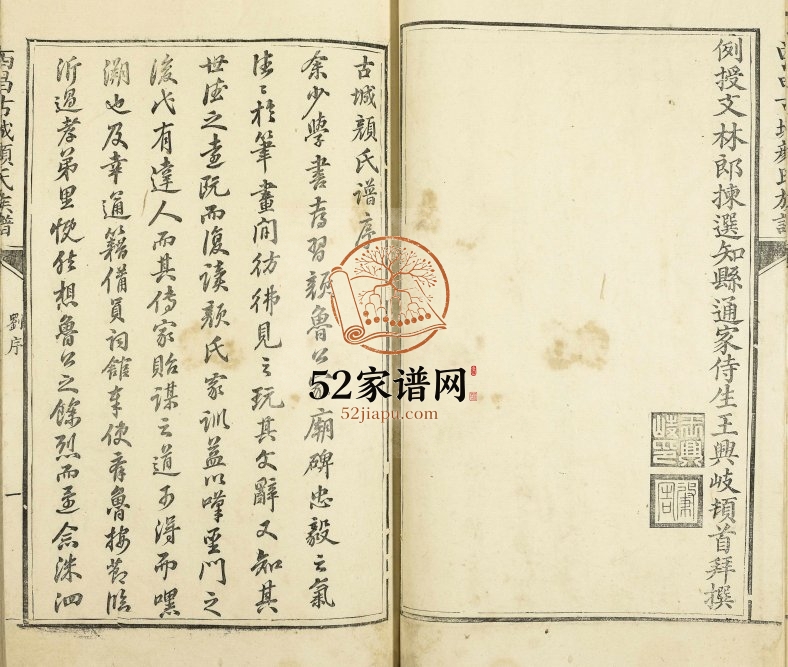 例授文林郎揀選知縣通家侍生王興岐頓首拜撰
古城顏氏譜序
余少學書喜習顏魯公家廟碑忠毅之氣
往往於筆畫間彷彿見之玩其文辭又知其
世德之遠既而復讀顏氏家訓益以嘆聖門之
後代有達人而其傳家貽謀之道可得而
溯也及幸通籍備員詞館奉使齊魯
沂過孝弟里恍然想魯公之餘烈而並念洙泗
西昌古城顏氏族譜
劉序
一
52家谱网
52jiapu.com